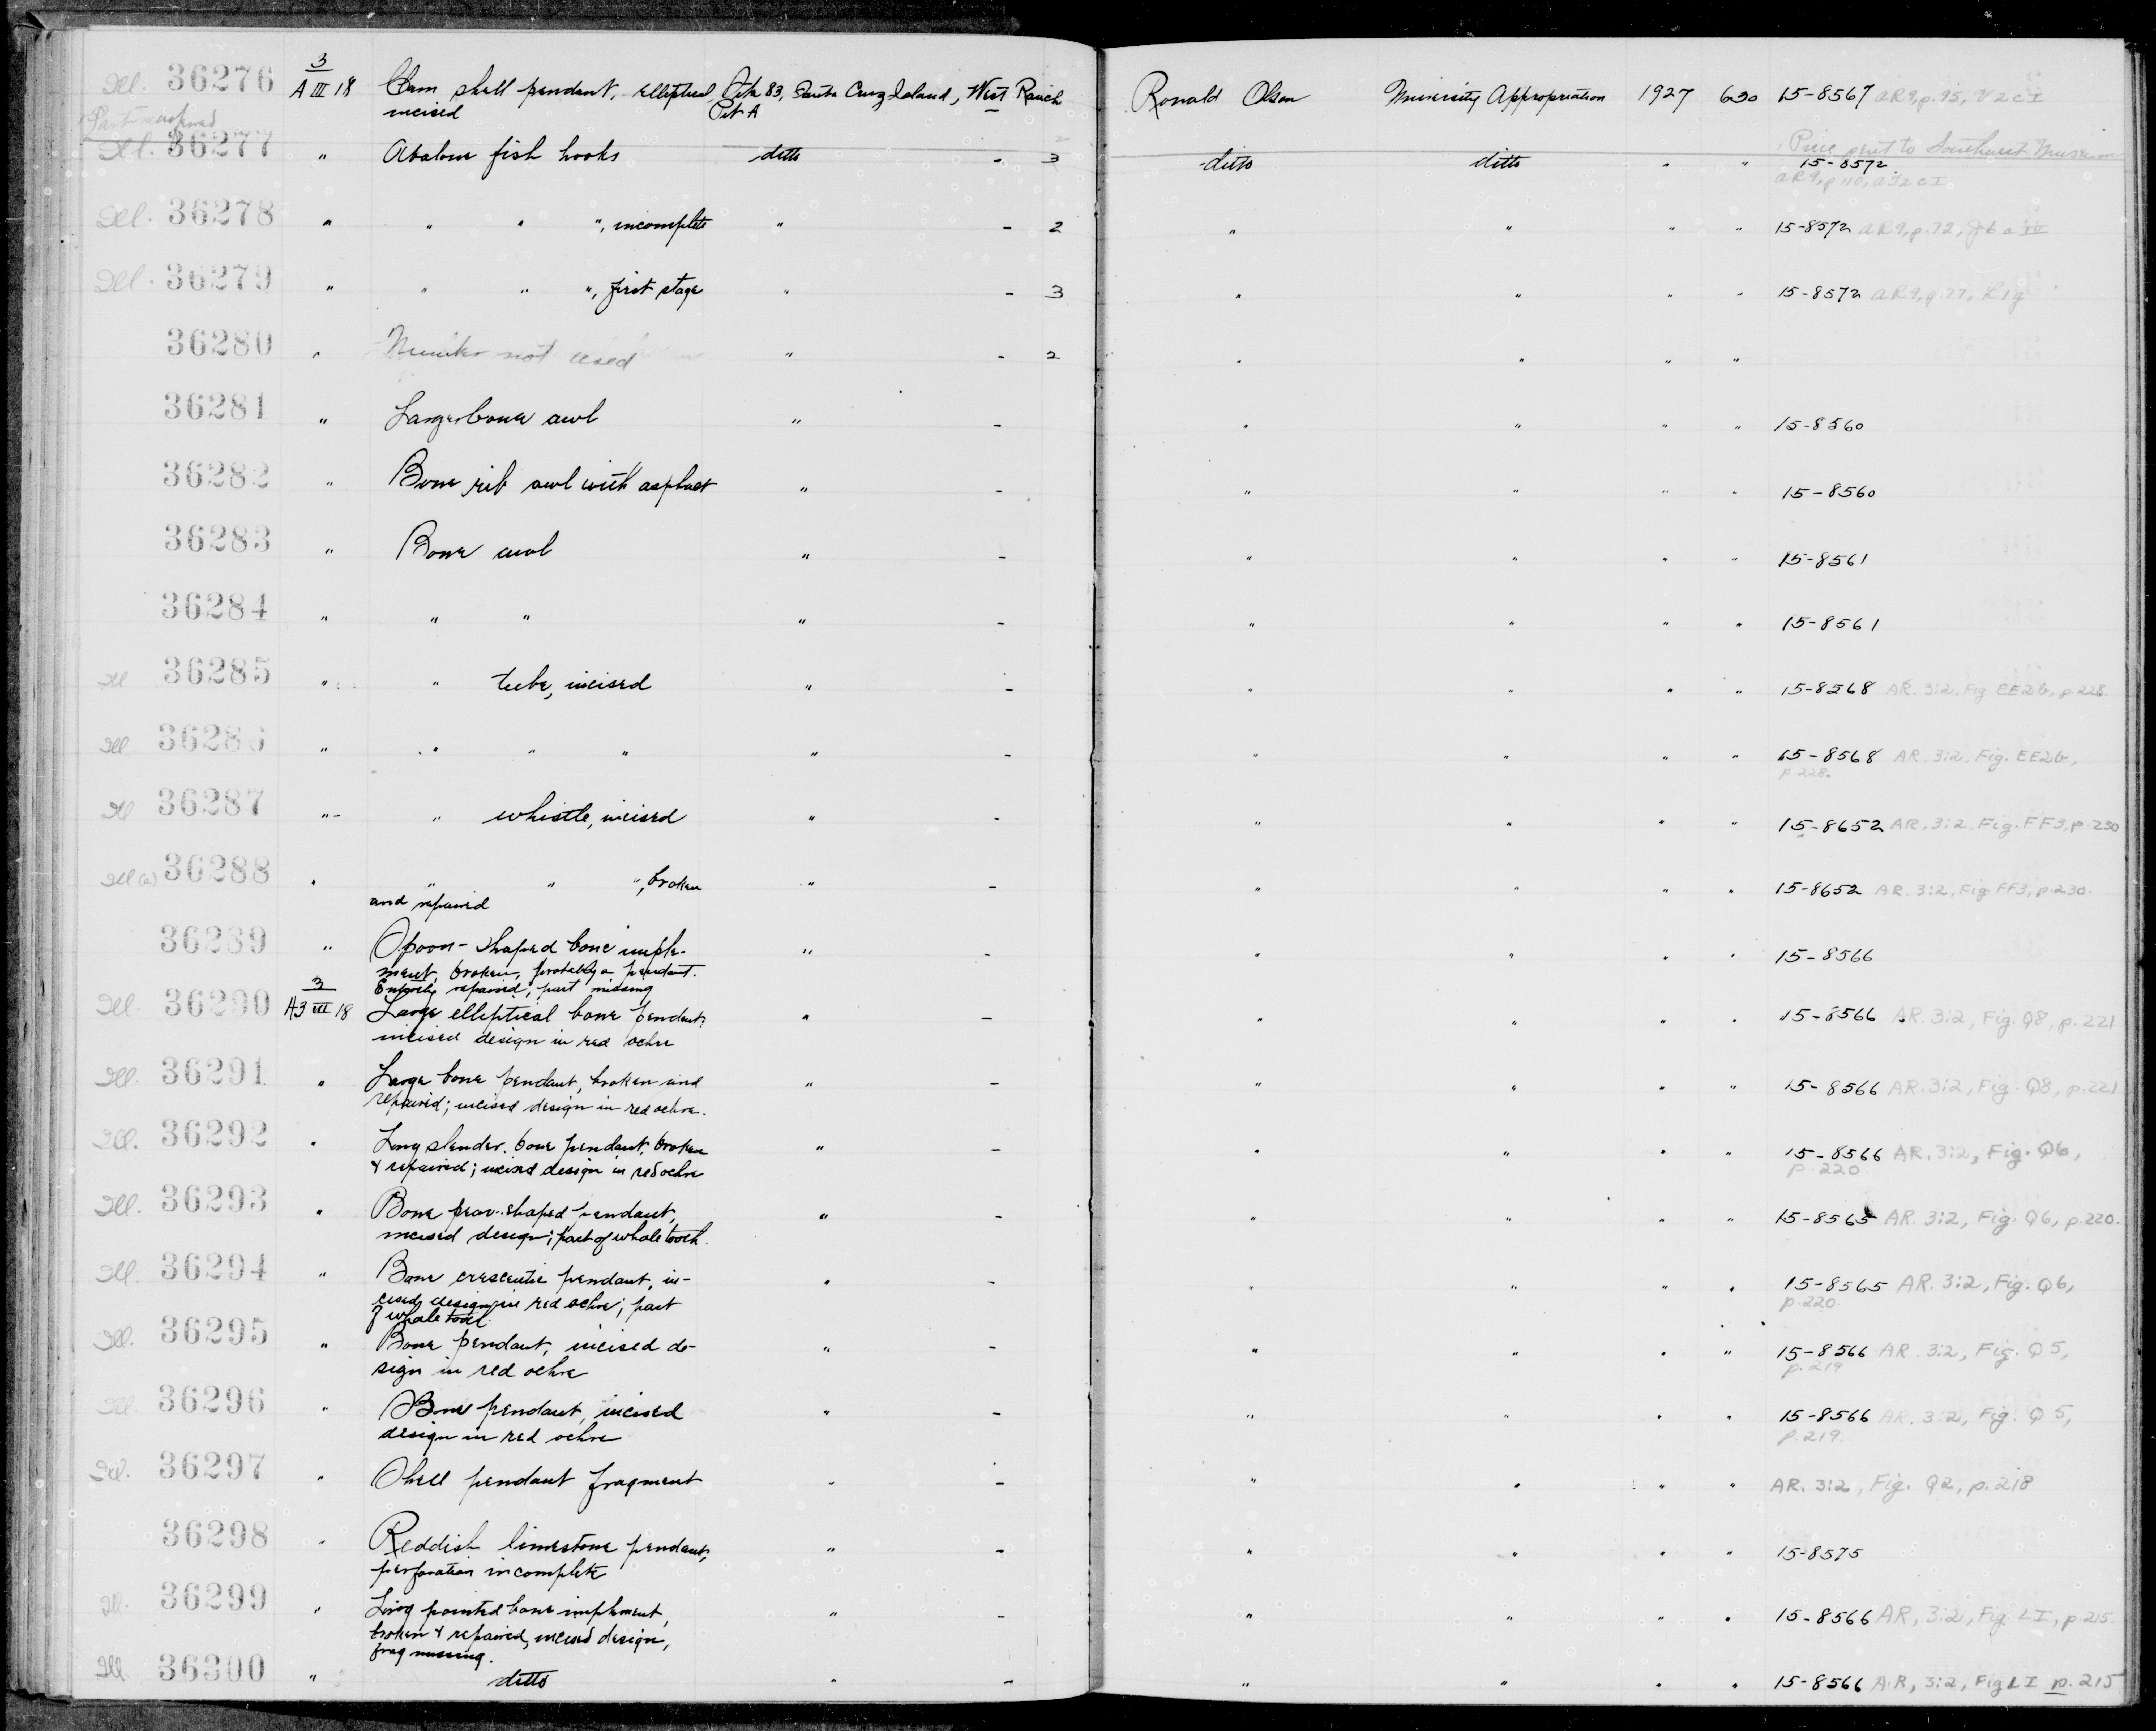 Ill. 36276 3 A III 18 Clam shell pendant, elliptical, Site 83, Santa Cruz Island, West Ranch Ronald Olson University Appropriation 1927 630 15-8567 AR9, p. 95, V2cI
incised Pit A
Ill. 36277 " Abalone fish hooks ditto - 3 ditto ditto " " 15-8572
Ill. 36278 " " " ", incomplete " - 2 " " " " 15-8572 AR9, p. 72,
Ill. 36279 " " " ", first stage " - 3 " " " " 15-8572 AR9, p. 77,
36280 " Number not used " - 2 " " " "
36281 " Large bone awl " - " " " " 15-8560
36282 " Bone rib awl with asphalt " - " " " " 15-8560
36283 " Bone awl " - " " " " 15-8561
36284 " " " " - " " " " 15-8561
Ill 36285 " " tube, incised " - " " " " 15-8568 AR. 3:2, Fig EE2b, p. 228.
Ill 36286 " " " " " - " " " " 15-8568 AR. 3:2, Fig. EE2b,
p. 228.
Ill 36287 " - " whistle, incised " - " " " " 15-8652 AR. 3:2, Fig. FF3, p. 230
Ill (a) 36288 " " " ", broken " - " " " " 15-8652 AR. 3:2, Fig. FF3, p. 230.
and repaired
36289 " Spoon-shaped bone imple- " - " " " " 15-8566
ment, broken, probably a pendant.
repaired; part missing
Ill. 36290 3 A3 III 18 Large elliptical bone pendant; " - " " " " 15-8566 AR. 3:2, Fig. Q8, p. 221
incised design in red ochre
Ill. 36291 " Large bone pendant, broken and " - " " " " 15-8566 AR. 3:2, Fig. Q8, p. 221
repaired; incised design in red ochre.
Ill. 36292 " Long slender bone pendant, broken " - " " " " 15-8566 AR. 3:2, Fig. Q6,
& repaired; incised design in red ochre p. 220
Ill. 36293 " Bone pear-shaped pendant, " - " " " " 15-8565 AR. 3:2, Fig. Q6, p. 220.
incised design; part of whale tooth.
Ill. 36294 " Bone crescentic pendant, in- " - " " " " 15-8565 AR. 3:2, Fig. Q6,
cised design in red ochre; part p. 220.
of whale tooth
Ill. 36295 " Bone pendant, incised de- " - " " " " 15-8566 AR. 3:2, Fig. Q5,
sign in red ochre p. 219
Ill. 36296 " Bone pendant, incised " - " " " " 15-8566 AR. 3:2, Fig. Q5,
design in red ochre p. 219.
Ill. 36297 " Shell pendant fragment " - " " " " AR. 3:2, Fig. Q2, p. 218
36298 " Reddish limestone pendant, " - " " " " 15-8575
perforation incomplete
Ill. 36299 " Long pointed bone implement, " - " " " " 15-8566 AR, 3:2, Fig. LI, p. 215
broken & repaired, incised design,
frag missing.
Ill. 36300 " ditto " - " " " " 15-8566 A.R, 3:2, Fig LI p. 215